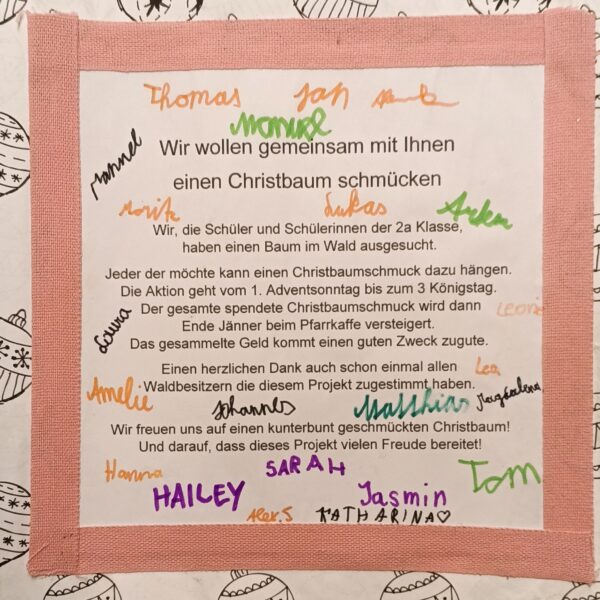 Thomas Jan
Manuel
Wir wollen gemeinsam mit Ihnen
Mannel
einen Christbaum schmücken
Moritz Lukas
Wir, die Schüler und Schülerinnen der 2a Klasse,
haben einen Baum im Wald ausgesucht.
Jeder der möchte kann einen Christbaumschmuck dazu hängen.
Die Aktion geht vom 1. Adventsonntag bis zum 3 Königstag.
Der gesamte spendete Christbaumschmuck wird dann
Leonie
Laura
Ende Jänner beim Pfarrkaffe versteigert.
Das gesammelte Geld kommt einen guten Zweck zugute.
Einen herzlichen Dank auch schon einmal allen
Lea
Waldbesitzern die diesem Projekt zugestimmt haben.
Amelie Johannes Matthias Magdalena
Wir freuen uns auf einen kunterbunt geschmückten Christbaum!
Und darauf, dass dieses Projekt vielen Freude bereitet!
Hanna SARAH Tom
HAILEY Jasmin
Alex.S KATHARINA♡